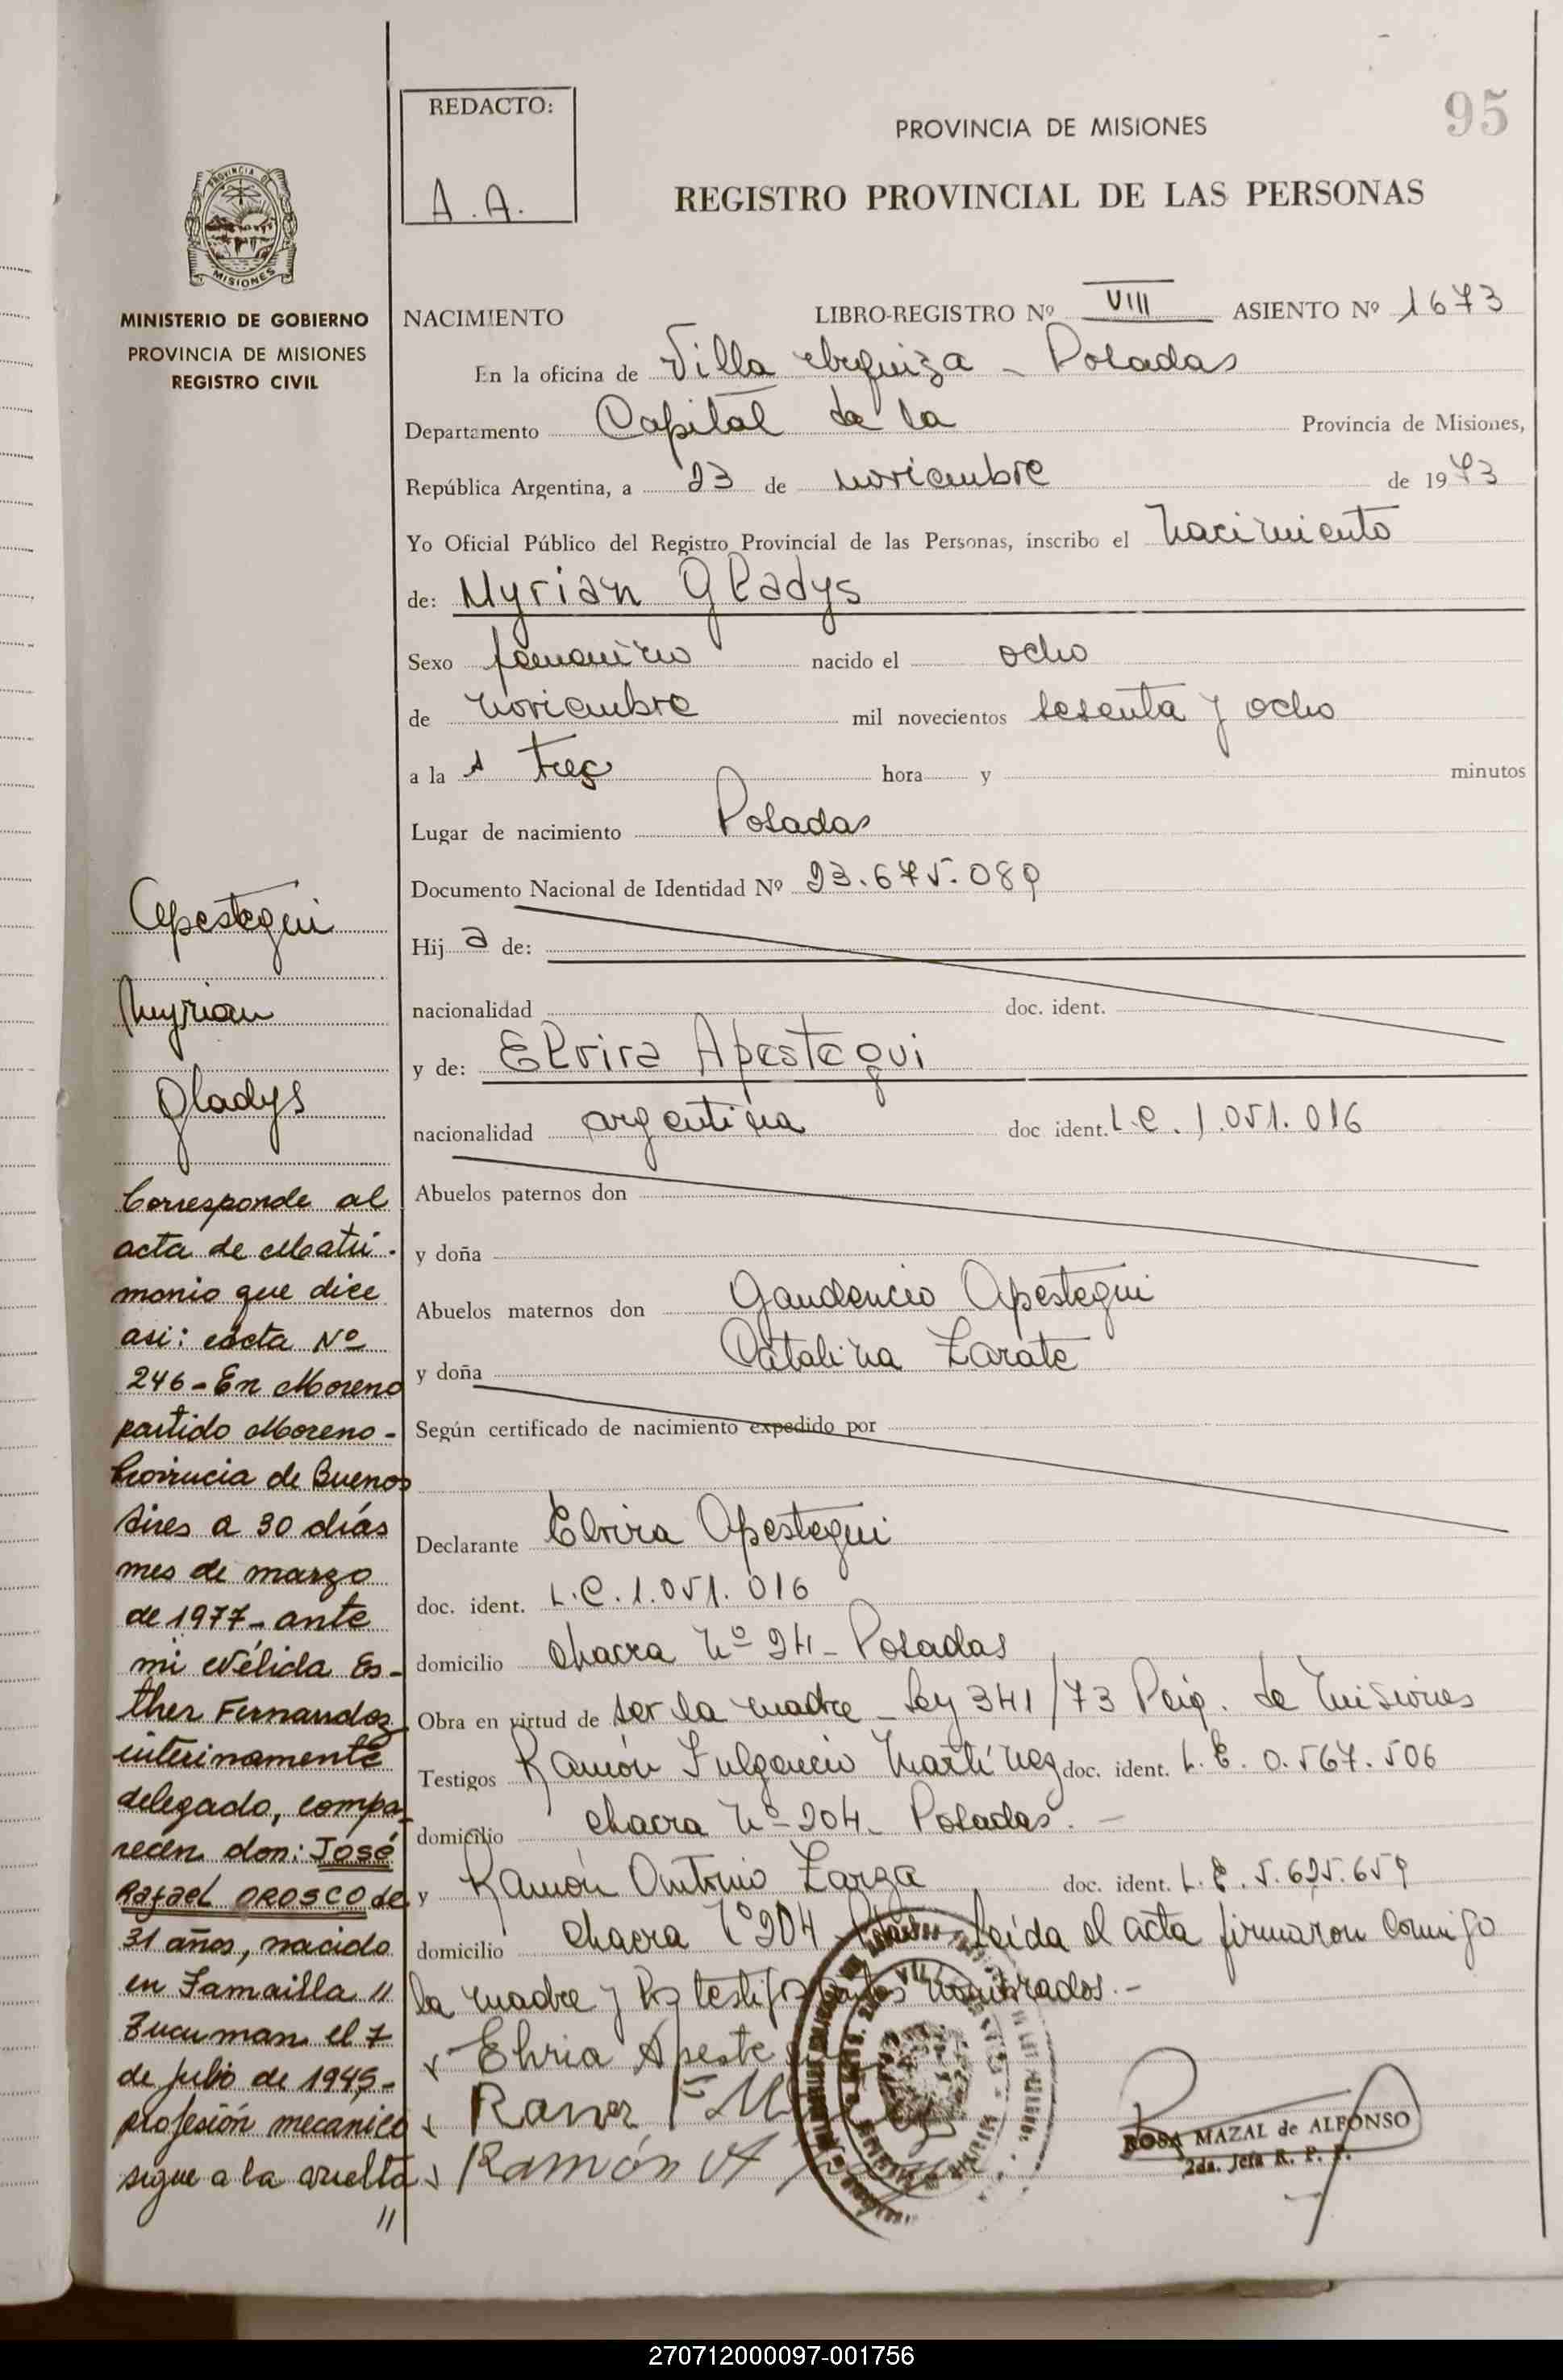 95
REDACTO:
A. A.
PROVINCIA DE MISIONES
REGISTRO PROVINCIAL DE LAS PERSONAS
PROVINCIA DE
MISIONES
MINISTERIO DE GOBIERNO
PROVINCIA DE MISIONES
REGISTRO CIVIL
NACIMIENTO LIBRO-REGISTRO Nº VIII ASIENTO Nº 1673
En la oficina de Villa Urquiza - Posadas
Departamento Capital de la Provincia de Misiones,
República Argentina, a 23 de noviembre de 1973
Yo Oficial Público del Registro Provincial de las Personas, inscribo el nacimiento
de: Myrian Gladys
Sexo femenino nacido el ocho
de noviembre mil novecientos sesenta y ocho
a la s tres hora y minutos
Lugar de nacimiento Posadas
Documento Nacional de Identidad Nº 23.675.089
Hij a de:
nacionalidad doc. ident.
y de: Elvira Apestegui
nacionalidad argentina doc ident. L.C. 1.051.016
Abuelos paternos don
y doña
Abuelos maternos don Gaudencio Apestegui
y doña Catalina Zarate
Según certificado de nacimiento expedido por
Declarante Elvira Apestegui
doc. ident. L.C. 1.051.016
domicilio chacra Nº 24 - Posadas
Obra en virtud de ser la madre - Ley 341/73 Pcia. de Misiones
Testigos Ramón Fulgencio Martínez doc. ident. L.E. 0.567.506
domicilio chacra Nº 204 - Posadas. -
y Ramón Antonio Zarza doc. ident. L.E. 5.625.659
domicilio chacra Nº 204 - Posadas Leída el acta firmaron conmigo
la madre y los testigos antes nombrados. -
Elvira Apestegui
Ramon F M
Ramón A
ROSA MAZAL de ALFONSO
2da. Jefa R. P. P.
Apestegui
Myrian
Gladys
Corresponde al
acta de Matri-
monio que dice
asi: Acta Nº
246 - En Moreno
partido Moreno -
Provincia de Buenos
Aires a 30 días
mes de marzo
de 1977 - ante
mi Nélida Es-
ther Fernandez
interinamente
delegado, compa-
recen don: José
Rafael OROSCO de
31 años, nacido
en Famailla //
Tucuman el 7
de julio de 1945 -
profesión mecánico
sigue a la vuelta
//
270712000097-001756